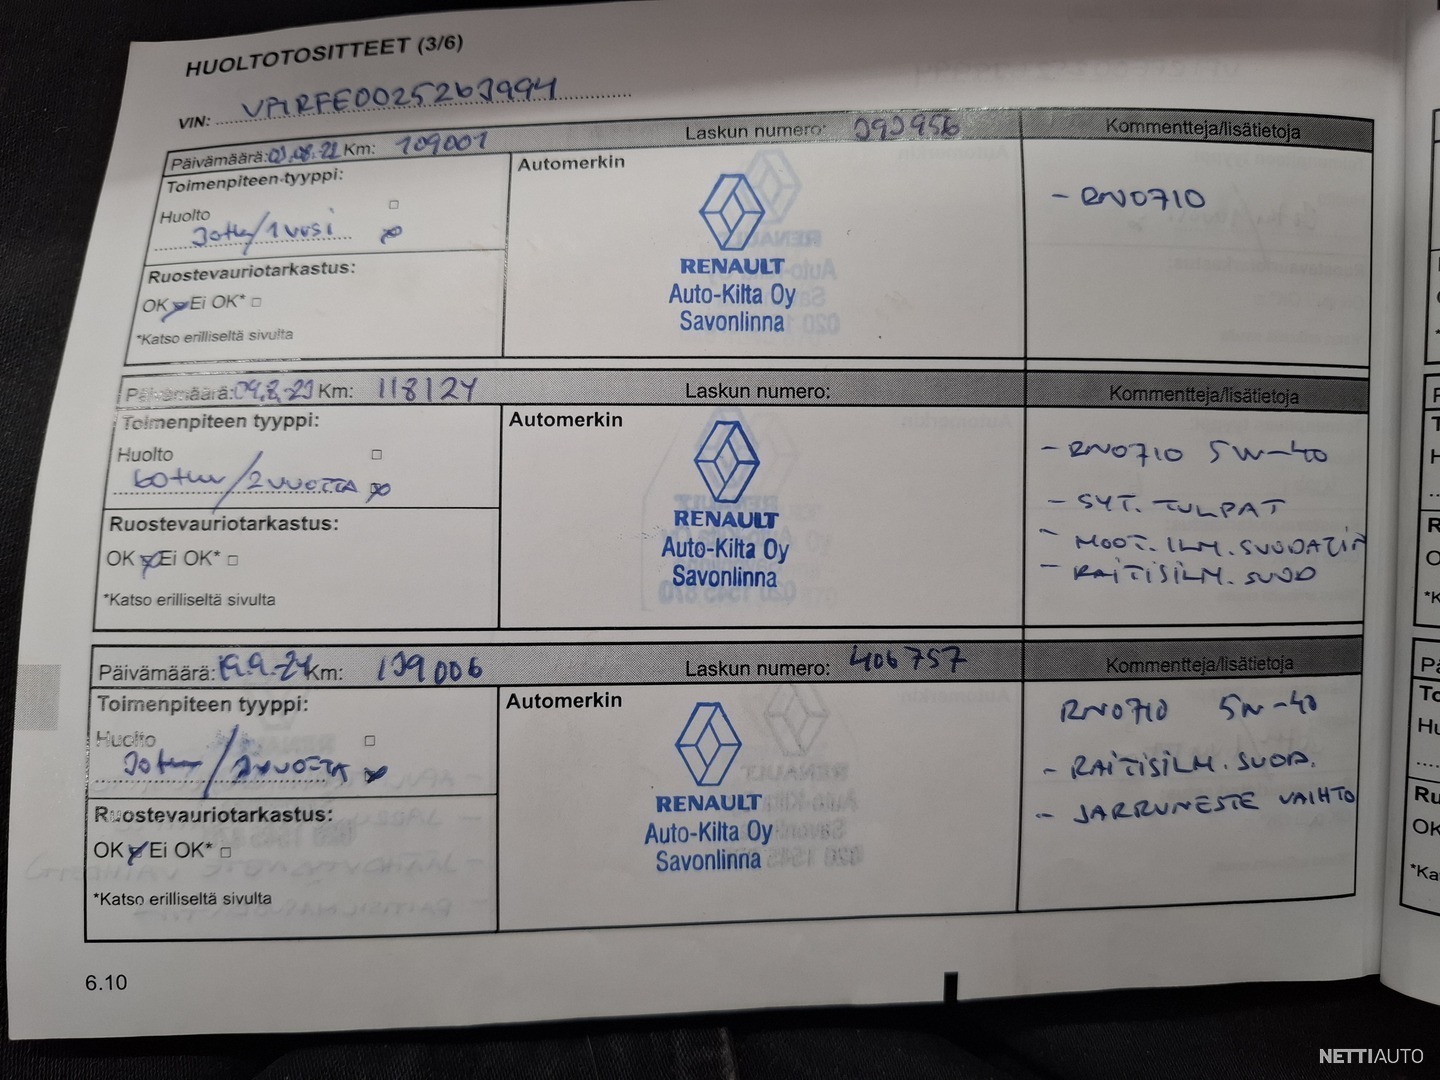 HUOLTOTOSITTEET (3/6)
VIN: VF1RFE00252639941
Päivämäärä: 03.08.22 Km: 109001 Laskun numero: 393956 Kommentteja/lisätietoja
Toimenpiteen tyyppi:
Huolto
30tkm/1 vuosi
Ruostevauriotarkastus:
OK Ei OK*
*Katso erilliseltä sivulta
Automerkin
RENAULT
Auto-Kilta Oy
Savonlinna
- RN0710
Päivämäärä: 09.8.23 Km: 118124 Laskun numero: Kommentteja/lisätietoja
Toimenpiteen tyyppi:
Huolto
60tkm/2 VUOTTA
Ruostevauriotarkastus:
OK Ei OK*
*Katso erilliseltä sivulta
Automerkin
RENAULT
Auto-Kilta Oy
Savonlinna
- RN0710 5W-40
- SYT. TULPAT
- MOOT. ILM. SUODATIN
- RAITISILM. SUOD
Päivämäärä: 19.9.24 Km: 139006 Laskun numero: 406757 Kommentteja/lisätietoja
Toimenpiteen tyyppi:
Huolto
30tkm/3 VUOTTA
Ruostevauriotarkastus:
OK Ei OK*
*Katso erilliseltä sivulta
Automerkin
RENAULT
Auto-Kilta Oy
Savonlinna
RN0710 5W-40
- RAITISILM. SUOD.
- JARRUNESTE VAIHTO
6.10
NETTIAUTO